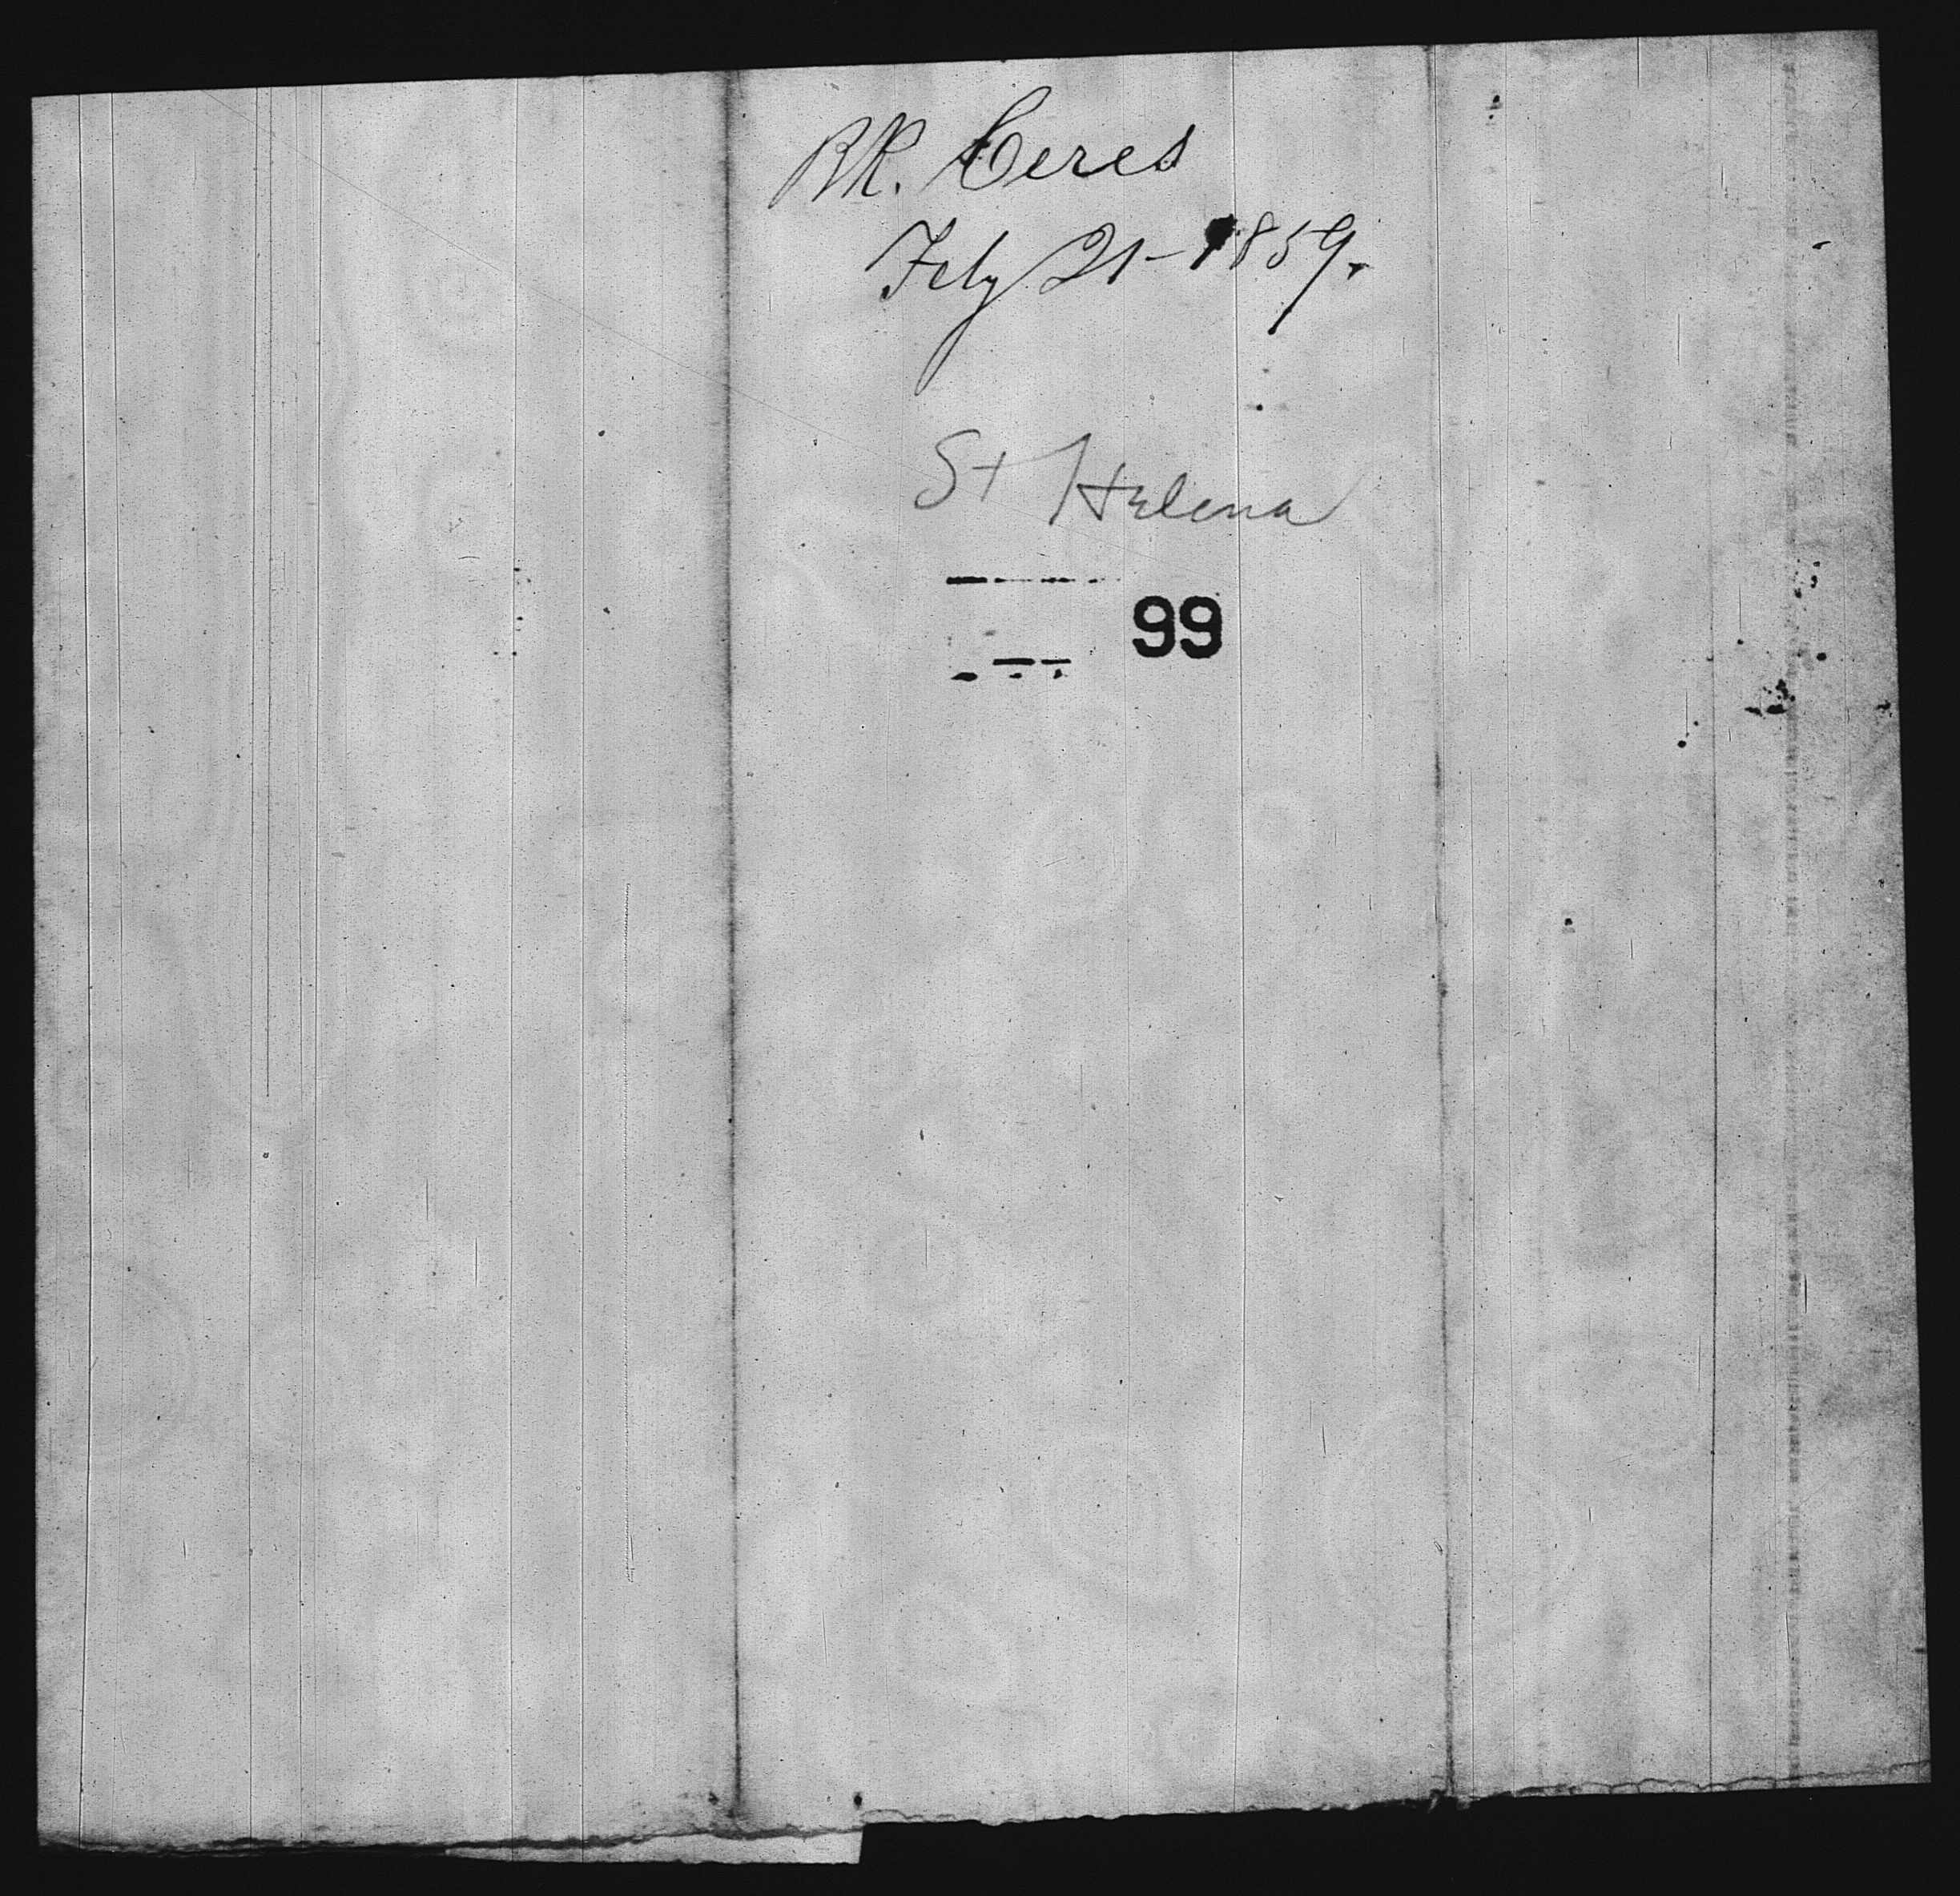 BK. Ceres
Feby 21-1859.
St Helena
99